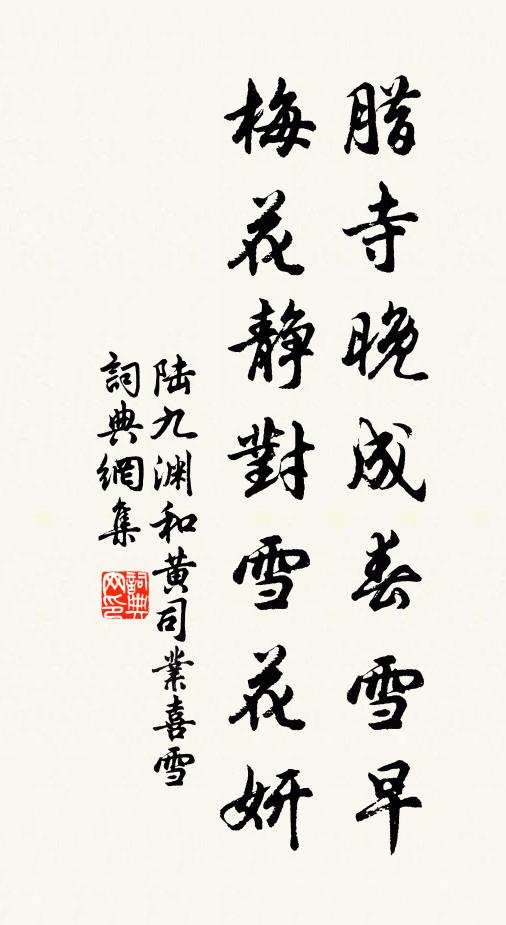 腊寺晚成春雪早
梅花静對雪花妍
陆九渊和黄司業喜雪
詞典網集
詞典网印